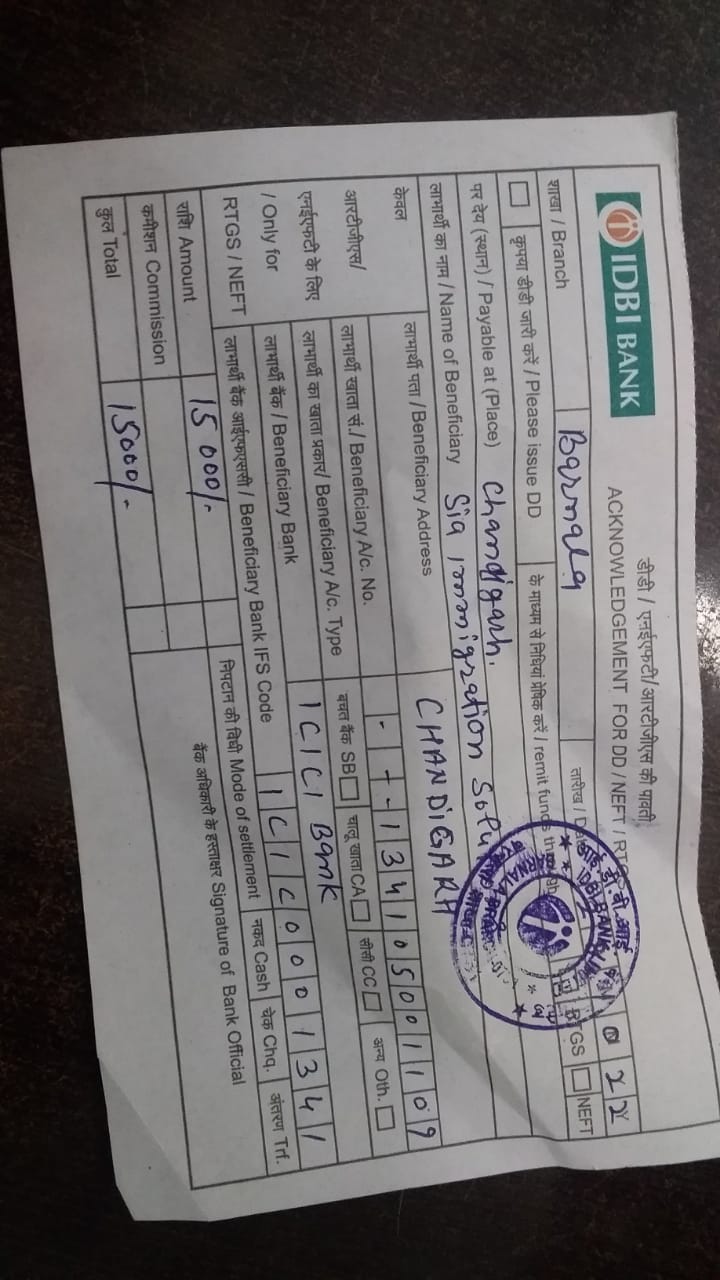 IDBI BANK
डीडी / एनईएफटी/आरटीजीएस की पावती
ACKNOWLEDGEMENT FOR DD / NEFT / RTGS
शाखा / Branch Barnala तारीख / Date 22
कृपया डीडी जारी करें / Please issue DD के माध्यम से निधियां प्रेषित करें / remit funds through RTGS NEFT
पर देय (स्थान) / Payable at (Place) Chandigarh.
लाभार्थी का नाम / Name of Beneficiary Sia immigration Solu
केवल आरटीजीएस/ एनईएफटी के लिए / Only for RTGS / NEFT
लाभार्थी पता / Beneficiary Address CHANDIGARH
लाभार्थी खाता सं./ Beneficiary A/c. No. - - - 134105001109
लाभार्थी का खाता प्रकार/ Beneficiary A/c. Type बचत बैंक SB चालू खाता CA सीसी CC अन्य Oth.
लाभार्थी बैंक / Beneficiary Bank ICICI Bank
लाभार्थी बैंक आईएफएससी / Beneficiary Bank IFS Code ICIC0001341
राशि Amount 15000/- निपटान की विधी Mode of settlement नकद Cash चेक Chq. अंतरण Trf.
कमीशन Commission बैंक अधिकारी के हस्ताक्षर Signature of Bank Official
कुल Total 15000/-
आई.डी.बी.आई
IDBI BANK